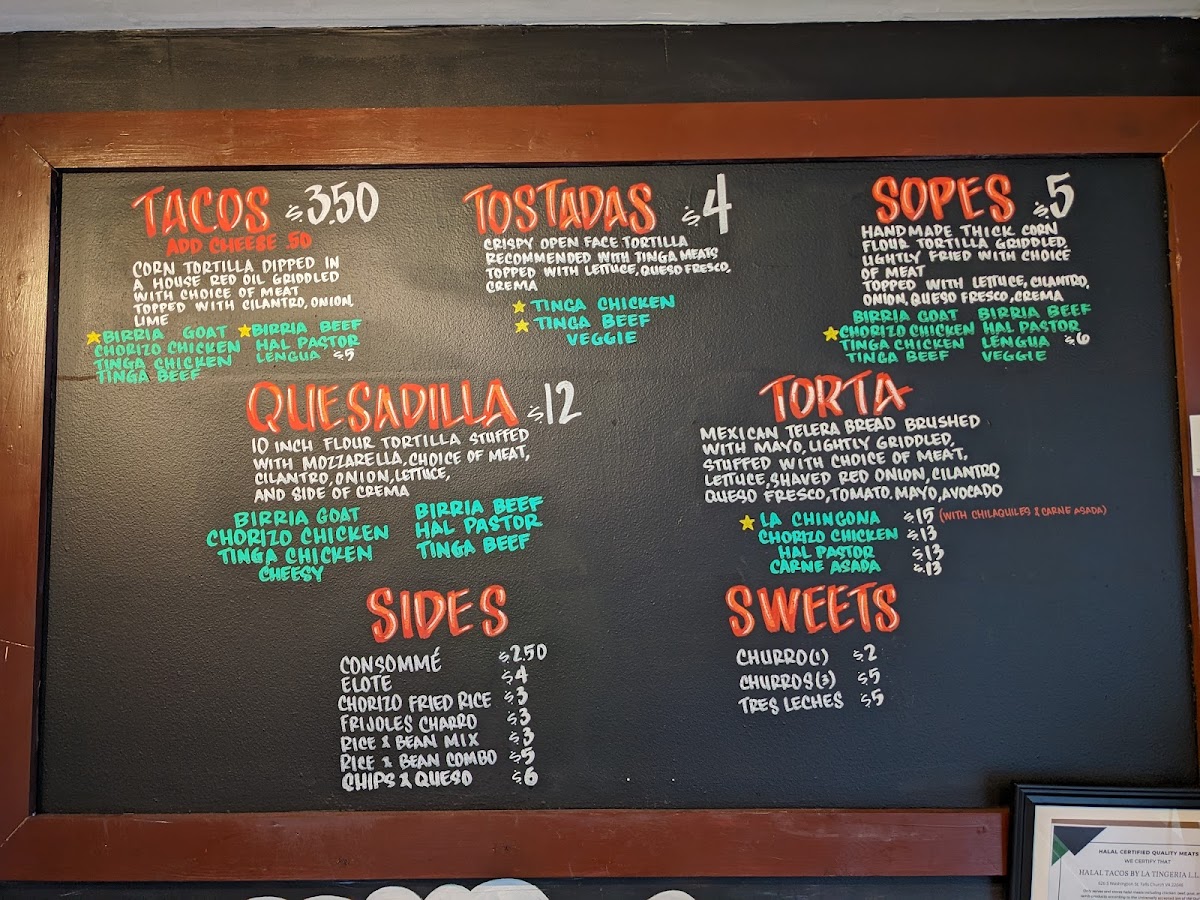 TACOS $3.50
ADD CHEESE .50
CORN TORTILLA DIPPED IN
A HOUSE RED OIL GRIDDLED
WITH CHOICE OF MEAT
TOPPED WITH CILANTRO, ONION,
LIME
BIRRIA GOAT BIRRIA BEEF
CHORIZO CHICKEN HAL PASTOR
TINGA CHICKEN LENGUA $5
TINGA BEEF
TOSTADAS $4
CRISPY OPEN FACE TORTILLA
RECOMMENDED WITH TINGA MEATS
TOPPED WITH LETTUCE, QUESO FRESCO,
CREMA
TINGA CHICKEN
TINGA BEEF
VEGGIE
SOPES $5
HANDMADE THICK CORN
FLOUR TORTILLA GRIDDLED,
LIGHTLY FRIED WITH CHOICE
OF MEAT
TOPPED WITH LETTUCE, CILANTRO,
ONION, QUESO FRESCO, CREMA
BIRRIA GOAT BIRRIA BEEF
CHORIZO CHICKEN HAL PASTOR
TINGA CHICKEN LENGUA $6
TINGA BEEF VEGGIE
QUESADILLA $12
10 INCH FLOUR TORTILLA STUFFED
WITH MOZZARELLA, CHOICE OF MEAT,
CILANTRO, ONION, LETTUCE,
AND SIDE OF CREMA
BIRRIA GOAT BIRRIA BEEF
CHORIZO CHICKEN HAL PASTOR
TINGA CHICKEN TINGA BEEF
CHEESY
TORTA
MEXICAN TELERA BREAD BRUSHED
WITH MAYO, LIGHTLY GRIDDLED,
STUFFED WITH CHOICE OF MEAT,
LETTUCE, SHAVED RED ONION, CILANTRO
QUESO FRESCO, TOMATO, MAYO, AVOCADO
LA CHINGONA $15 (WITH CHILAQUILES & CARNE ASADA)
CHORIZO CHICKEN $13
HAL PASTOR $13
CARNE ASADA $13
SIDES
CONSOMMÉ $2.50
ELOTE $4
CHORIZO FRIED RICE $3
FRIJOLES CHARRO $3
RICE & BEAN MIX $3
RICE & BEAN COMBO $5
CHIPS & QUESO $6
SWEETS
CHURRO(1) $2
CHURROS(3) $5
TRES LECHES $5
HALAL CERTIFIED QUALITY MEATS
WE CERTIFY THAT
HALAL TACOS BY LA TINGERIA L.L.